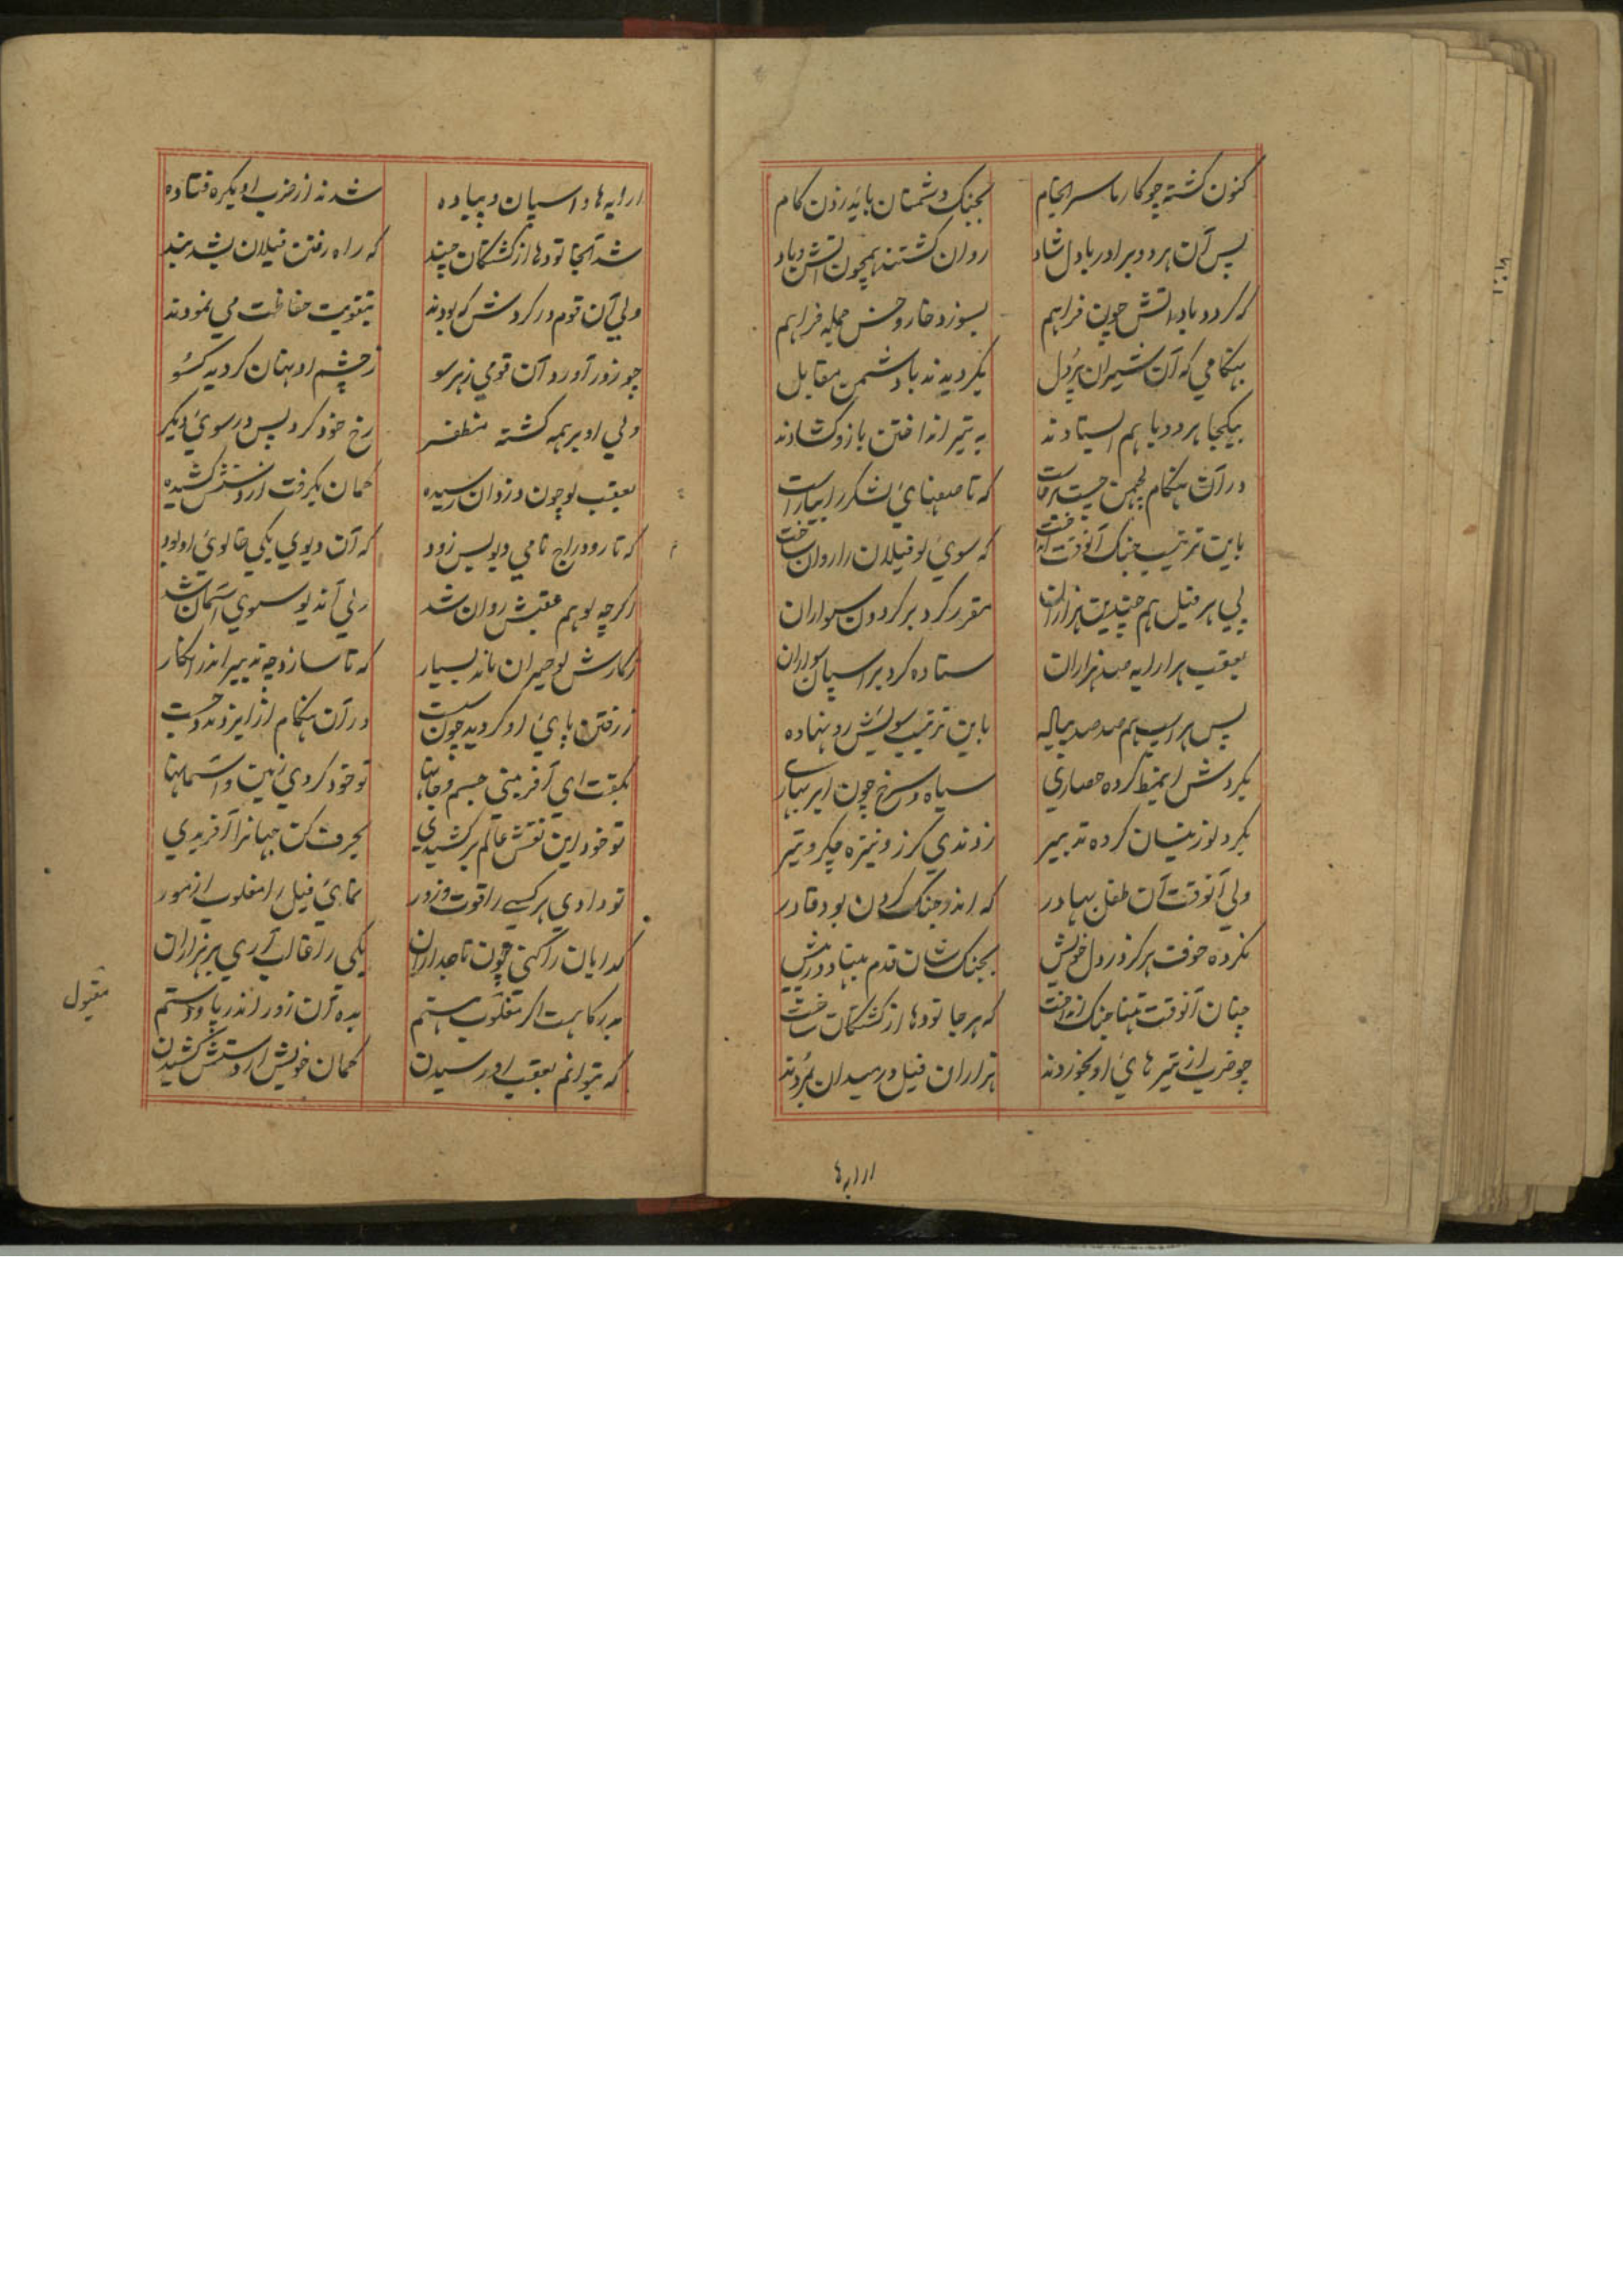 کنون کشته چو کارما سرانجام بجنک دشمنان باید زدن کام
پس آن هر دو برادر با دل شاد روان کشتند همچون آتش و باد
که کردد باد و آتش چون فراهم بسوزد خار و خس جمله فراهم
بهنکامی که آن شیران پردل بکردیدند با دشمن مقابل
بیکجا هر دو با هم ایستادند به تیر انداختن بازو کشادند
در آن هنکام لچمن خواست که تا صفهای لشکر را بیاراست
باین ترتیب جنک آنوقت انداخت که سوی او فیلان را روان ساخت
پی هر فیل هم چندین هزاران مقرر کرد بر کردون سواران
بعقب هر ارابه صد هزاران ستاده کرد بر اسپان سواران
پس هر اسپ هم صد صد پیاله باین ترتیب سویش رو نهاده
بکردش اینمط کرده حصاری سیاه و سرخ چون ابر بهاری
بکرد او زینسان کرده تدبیر زدندی کرز و نیزه چکر و تیر
ولی آنوقت آن طفل بهادر که اندر جنک کردن بود قادر
نکرده خوف هرکز در دل خویش بجنک شان قدم بنهاد در پیش
چنان آنوقت تنها جنک انداخت که هر جا تودها از کشتکان ساخت
چو ضرب از تیرهای او بخوردند هزاران فیل در میدان بمردند
ارابه ها
ارابه ها و اسپان و پیاده شدند از ضرب او یکره فتاده
شد آنجا تودها از کشتکان چند که راه رفتن فیلان بشد بند
ولی آن قوم در کردش که بودند بتقویت حفاظت می نمودند
چو زور آورد آن قومی زهر سو ز چشم او نهان کردید کسو
ولی او بر همه کشته مظفر رخ خود کرد پس در سوی دیکر
بعقب او چون دزدان رسیده کمان بکرفت از دستش کشیده
که تارودراج نامی دیو بس زود که آن دیوی یکی خالوی او بود
اکرچه او هم عقبش روان شد ولی آن دیو سوی آسمان شد
ز کارش او حیران ماند بسیار که تا سازد چه تدبیر اندر آن کار
ز رفتن پای او کردید چون سست در آن هنکام از ایزد مدد جست
بکفت ای آفرینی جسم و جانها تو خود کردی زمین و آسمانها
تو خود این نقش عالم برکشیدی بحرف کن جهانرا آفریدی
تو دادی هر کسی را قوت و زور نمای فیل را مغلوب از مور
کدایان را کنی چون تاجداران یکی را غالب آری بر هزاران
بدرکاهت اکر مغلوب هستم بده آن زور اندر پا و دستم
که بتوانم بعقب او رسیدن کمان خویش از دستش کشیدن
مقبول